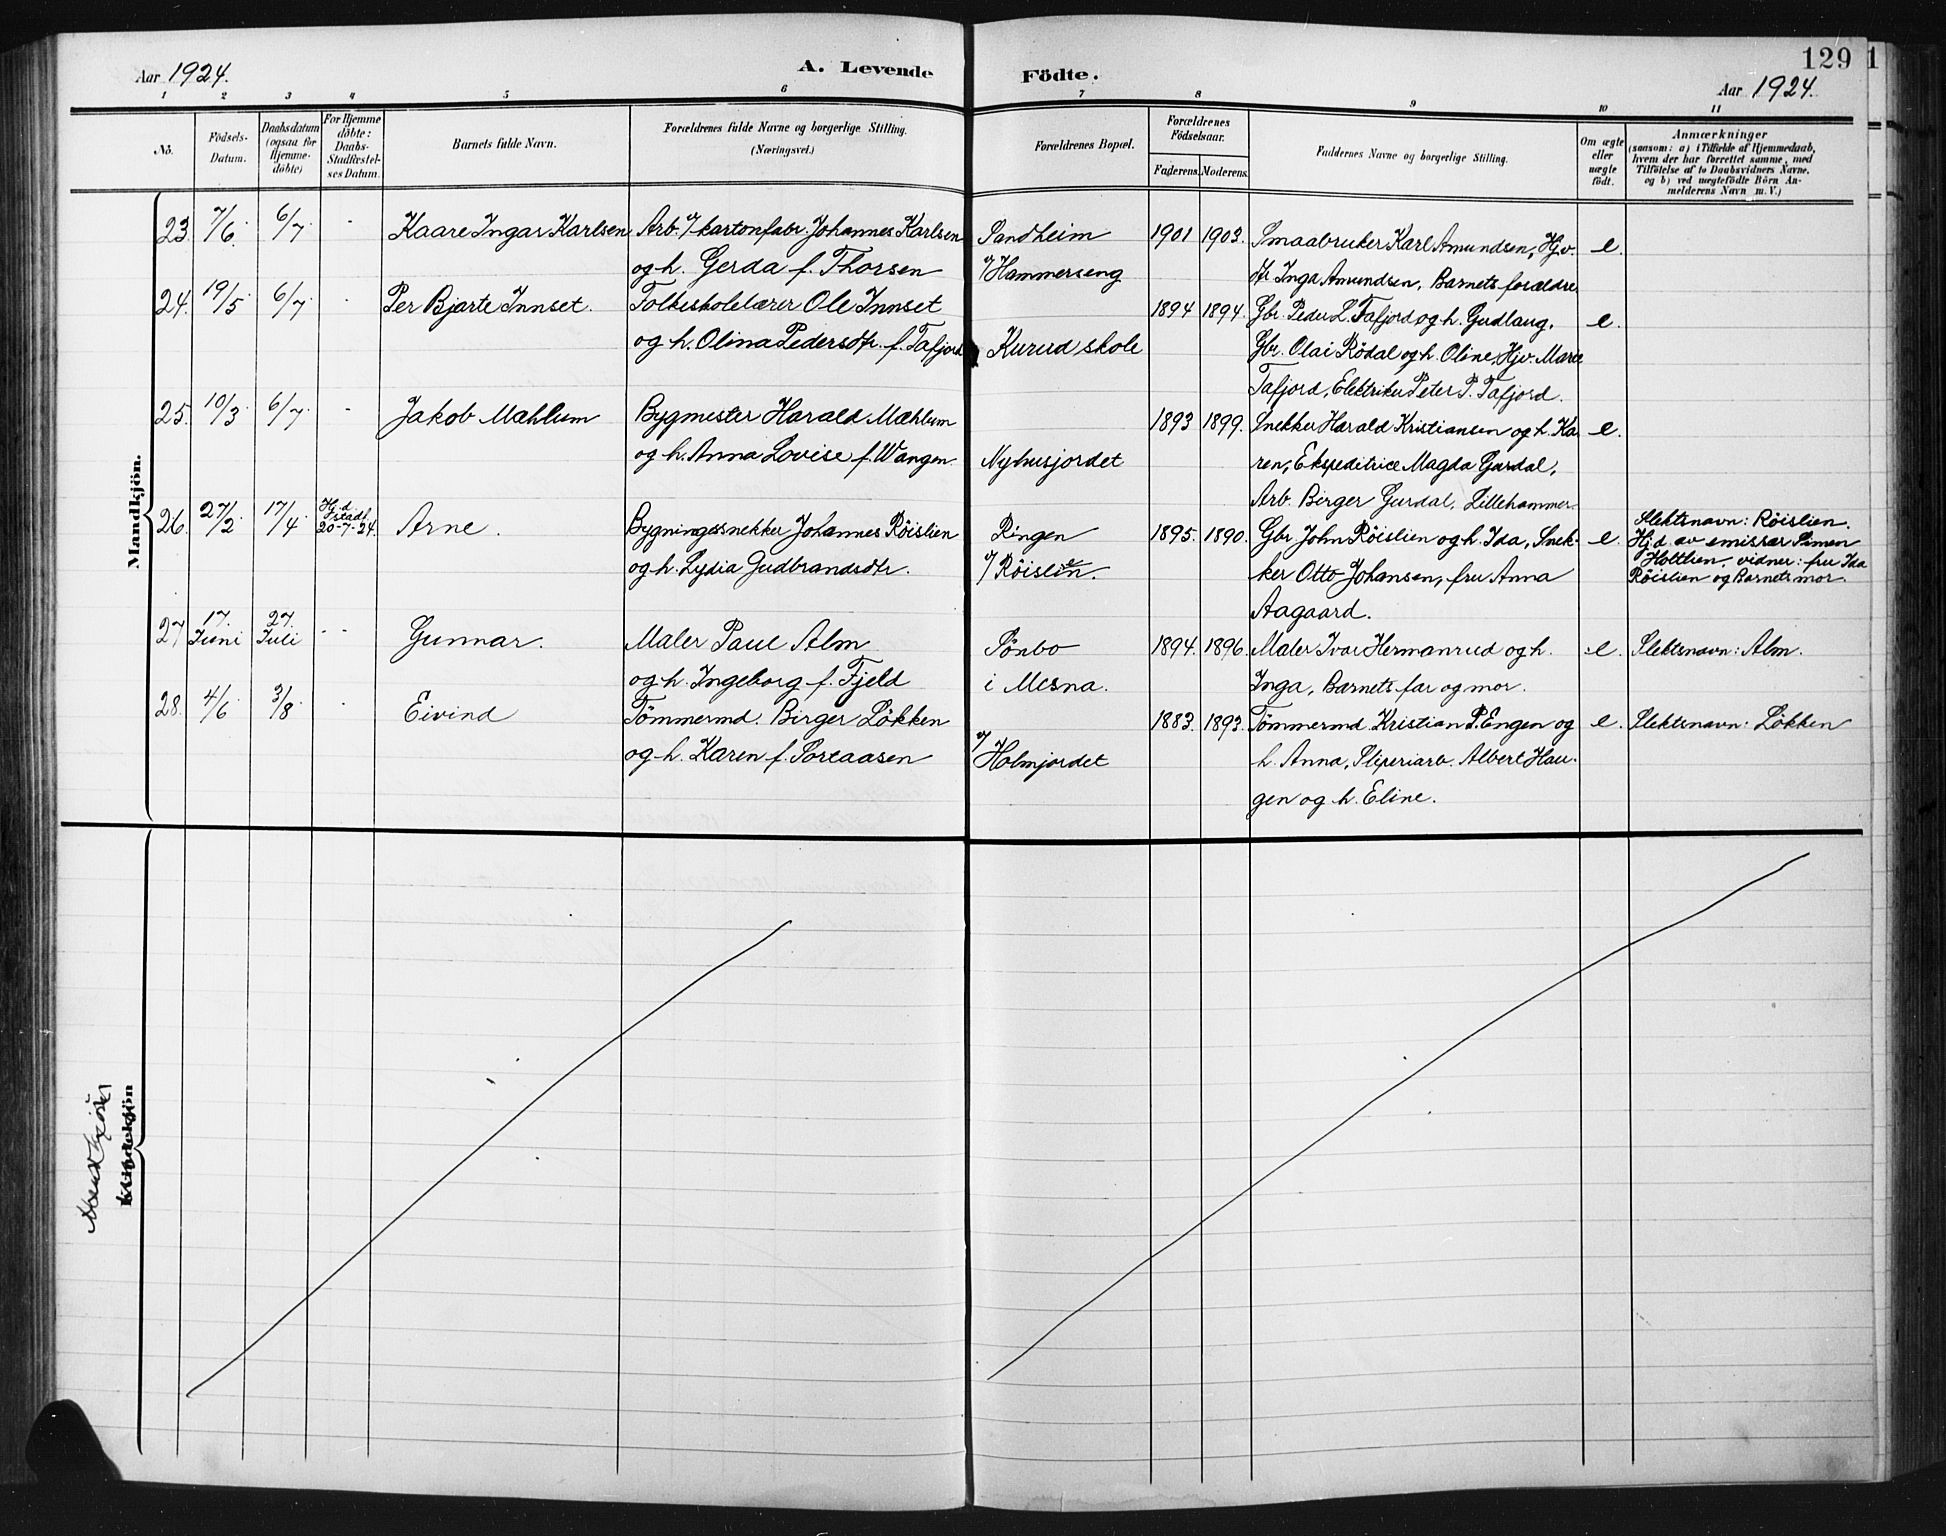 129 1
Aar 1924. A. Levende Födte. Aar 1924.
1 2 3 4 5 6 7 8 9 10 11
No. Födsels-Datum. Daabsdatum (ogsaa for Hjemme-döbte) For Hjemme döbte: Daabs-Stadfæstel-ses Datum. Barnets fulde Navn. Forældrenes fulde Navne og borgerlige Stilling. (Næringsvei.) Forældrenes Bopæl. Forældrenes Födselsaar. Faderens. Moderens. Faddernes Navne og borgerlige Stilling. Om ægte eller uægte födt. Anmærkninger
(saasom: a) i Tilfælde af Hjemmedaab,
hvem der har forrettet samme, med
Tilföielse af to Daabsvidners Navne,
og b) ved uægtefödte Börn An-
melderens Navn m. V.)
Mandkjön.
23. 7/6. 6/7 - Kaare Ingar Karlsen Arb. v/ kartonfabr. Johannes Karlsen Sandheim 1901 1903. Smaabruker Karl Amundsen, Hjv. e.
og h. Gerda f. Thorsen v/Hammerseng Inga Amundsen, Barnets forældre
24. 19/5 6/7 - Per Bjarte Innset. Folkeskolelærer Ole Innset 1894 1894. Gbr. Peder L. Tafjord og h. Gudlaug, e.
og h. Olina Pedersdtr. f. Tafjord Kurud skole Gbr. Olai Rödal og h. Oline, Hjv. Marie
Tafjord, Elektriker Peter P. Tafjord.
25. 10/3 6/7 - Jakob Mæhlum Bygmester Harald Mæhlum 1893 1899. Snekker Harald Kristiansen og h. Ka- e.
og h. Anna Lovise f. Wangen Nyhusjordet ren, Ekspeditrice Magda Gurdal,
Arb. Birger Gurdal, Lillehammer.
26. 27/2 17/4 Hj.d. stadf. 20-7-24. Arne. Bygningssnekker Johannes Röislien Ringen 1895. 1890. Gbr John Röislien og h. Ida, Snek- e. Slektsnavn: Röislien.
og h. Lydia Gudbrandsdtr. v/ Röislien. ker Otto Johansen, fru Anna Hj.d. av emissær Simen
Aagaard. Holtlien, vidner: fru Ida
Röislien og Barnets mor.
27 17. Juni 27. Juli - - Gunnar. Maler Paul Alm Sönbo 1894. 1896. Maler Ivar Hermanrud og h. e. Slektsnavn: Alm.
og h. Ingeborg f. Fjeld i Mesna. Inga, Barnets far og mor.
28. 4/6 3/8 - Eivind Tömmermd. Birger Lökken 1883. 1893. Tömmermd. Kristian P. Engen og e. Slektsnavn: Lökken
og h. Karen f. Portaasen v/ Holmjordet h. Anna, Sliperiarb. Albert Hau-
gen og h. Eline.
Kvindekjön